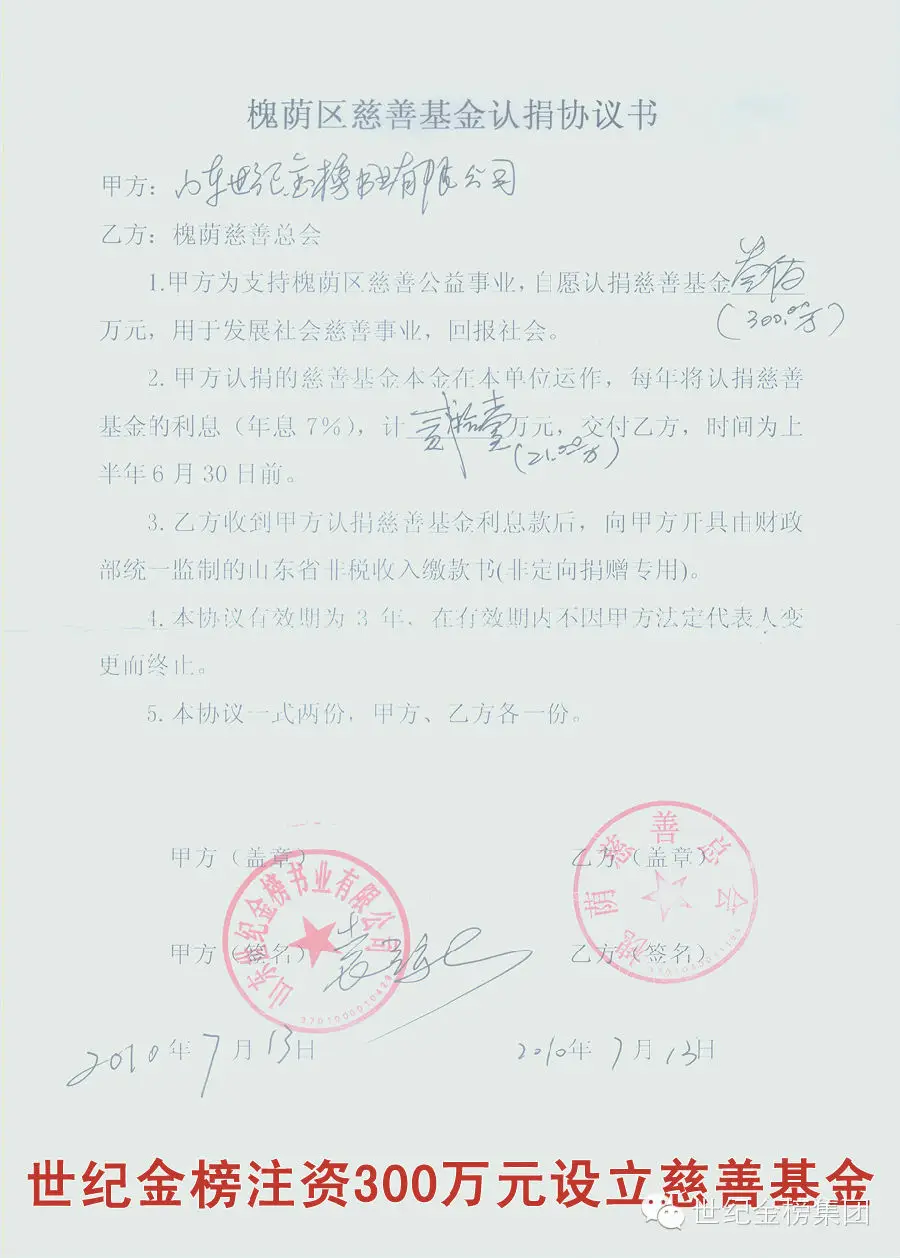 槐荫区慈善基金认捐协议书
甲方：山东世纪金榜书业有限公司
乙方：槐荫慈善总会
1.甲方为支持槐荫区慈善公益事业，自愿认捐慈善基金叁佰
(300.00万)
万元，用于发展社会慈善事业，回报社会。
2.甲方认捐的慈善基金本金在本单位运作，每年将认捐慈善
基金的利息（年息7%），计贰拾壹万元，交付乙方，时间为上
(21.00万)
半年6月30日前。
3.乙方收到甲方认捐慈善基金利息款后，向甲方开具由财政
部统一监制的山东省非税收入缴款书(非定向捐赠专用)。
4.本协议有效期为3年，在有效期内不因甲方法定代表人变
更而终止。
5.本协议一式两份，甲方、乙方各一份。
甲方（盖章） 乙方（盖章）
山东世纪金榜书业有限公司
槐荫慈善总会
甲方（签名） 乙方（签名）
2010年7月13日 2010年7月13日
世纪金榜注资300万元设立慈善基金
世纪金榜集团